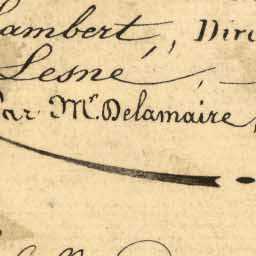 Lambert, Dire
Lesné,
Par Mr. Delamaire,